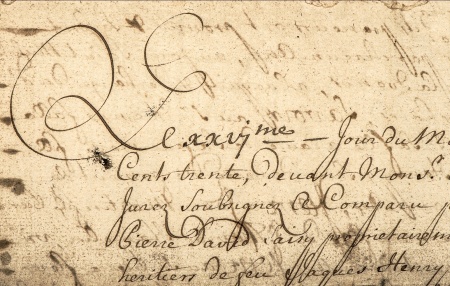 Le xxvjme — Jour du M
Cents trente, devant Mons.r
Jurez Soubsignez Est Comparu p
Pierre David proprietaire m
heritiers de feu Jaques Henry